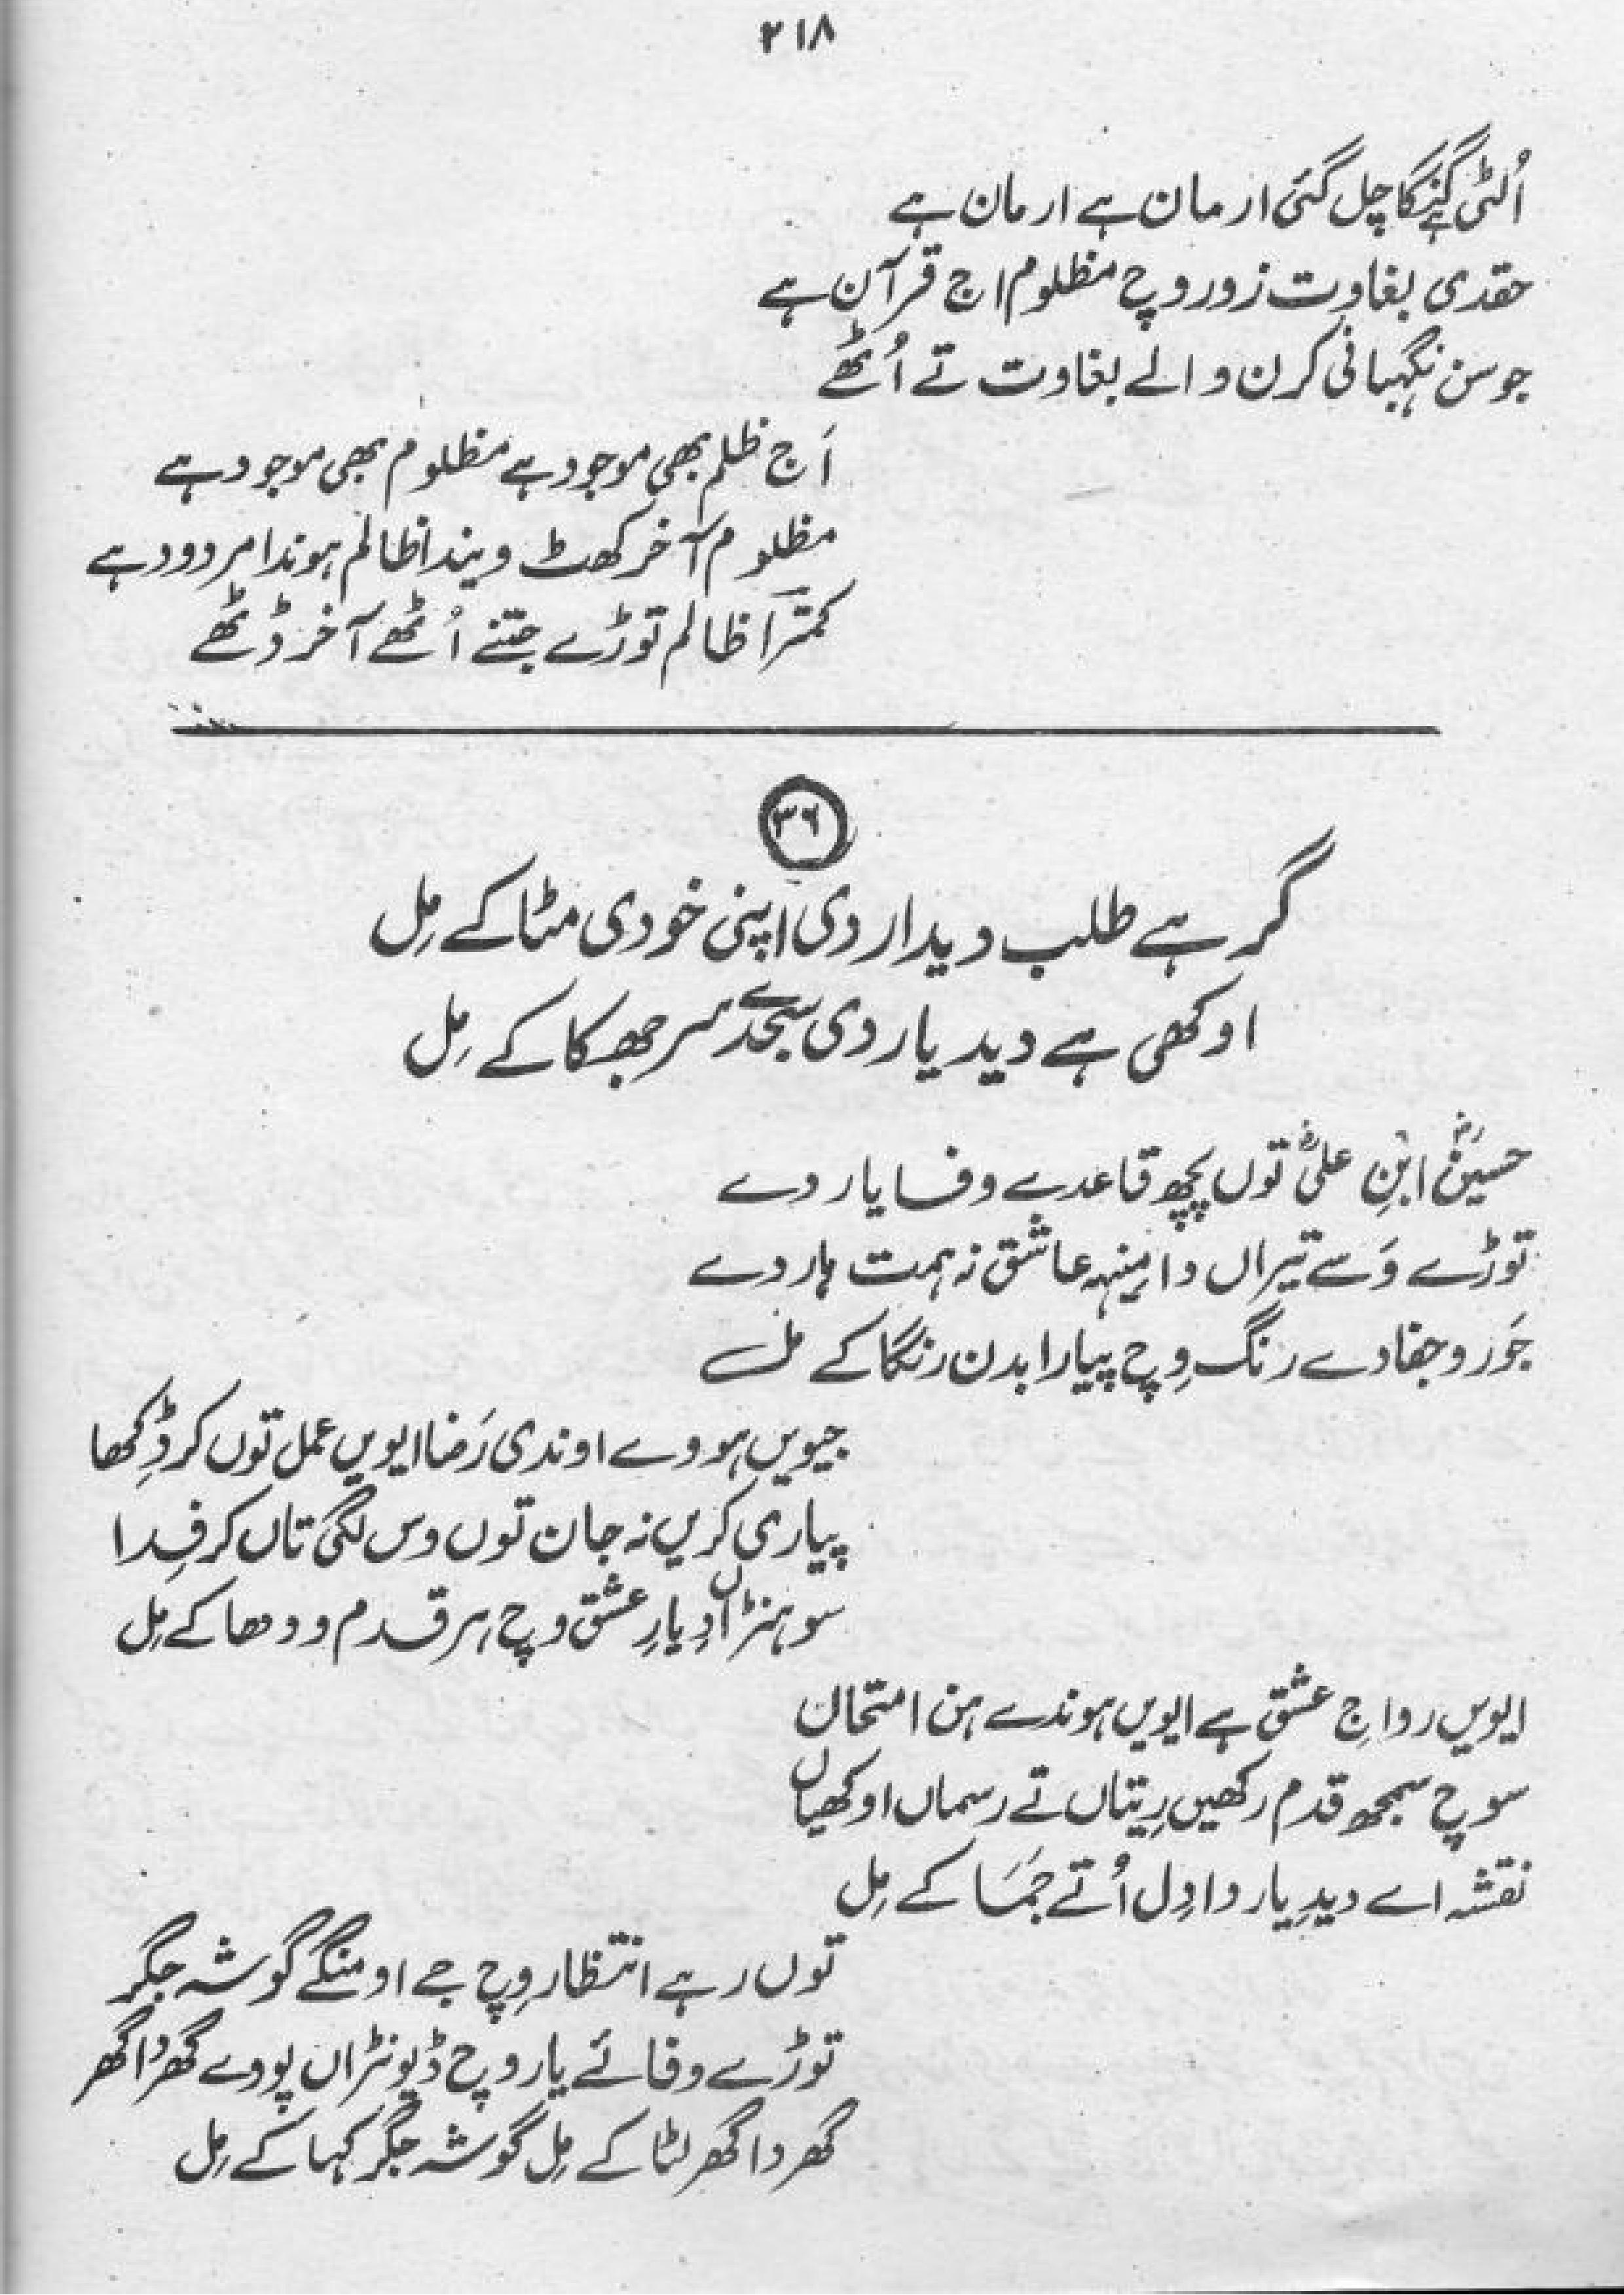 ۲۱۸
اُلٹی گنگا ہے چل گئی ارمان ہے ارمان ہے
حقدی بغاوت زور وچ مظلوم اج قرآن ہے
جو سن نگہبانی کرن والے بغاوت تے اُٹھے
اَج ظلم بھی موجود ہے مظلوم بھی موجود ہے
مظلوم آخر کھٹ ویندا ظالم ہوندا مردود ہے
کمترؔ اَ ظالم توڑے جتنے اُٹھے آخر ڈٹھے
۳۶
گر ہے طلب دیدار دی اپنی خودی مٹا کے مِل
اوکھی ہے دید یار دی سجدے سر جھکا کے مِل
حسینؓ ابنِ علیؓ توں پچھ قاعدے وفا یار دے
توڑے وَسے تیراں دا مِنہہ عاشق نہ ہمت ہار دے
جَور و جفا دے رنگ وِچ پیارا بدن رنگا کے مل
جیویں ہووے اوندی رَضا ایویں عمل توں کر ڈِکھا
پیاری کریں نہ جان توں وس لگی تاں کر فِدا
سوہنڑاں دِیارِ عشق وچ ہر قدم ودھا کے مِل
ایویں رواجِ عشق ہے ایویں ہوندے ہن امتحان
سوچ سمجھ قدم رکھیں رِیتاں تے رسماں اوکھیاں
نقشہ اے دیدِ یار دا دِل اُتے جَمَا کے مِل
توں رہے انتظار وِچ جے او منگے گوشہ جگر
توڑے وفائے یار وچ ڈیونڑاں پووے گھر دا گھر
گھر دا گھر لٹا کے مِل گوشہ جگر کہا کے مِل